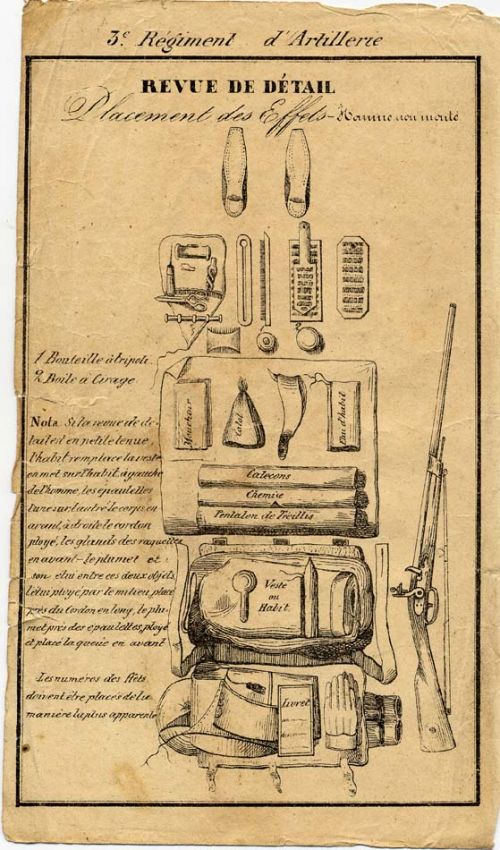 3.e Régiment d'Artillerie
REVUE DE DÉTAIL
Placement des Effets - Homme non monté
1 Bouteille à tripoli.
2 Boite à Cirage.
Nota. Si la revue de dé-
tail est en petite tenue,
l'habit remplace la veste
on met sur l'habit, à gauche
de l'homme, les epaulettes
l'une sur l'autre le corps en
avant, à droite le cordon
ployé, les glands des raquettes
en avant - le plumet et
son etui entre ces deux objets
l'étui ployé par le milieu, placé
près du Cordon en long, le plu-
met près des epaulettes, ployé
et placé la queue en avant
Les numéros des effets
doivent être placés de la
manière la plus apparente
Mouchoir
Calot
Sac d'habit
Calecons
Chemise
Pantalon de Treillis
Veste
ou
Habit
Livret